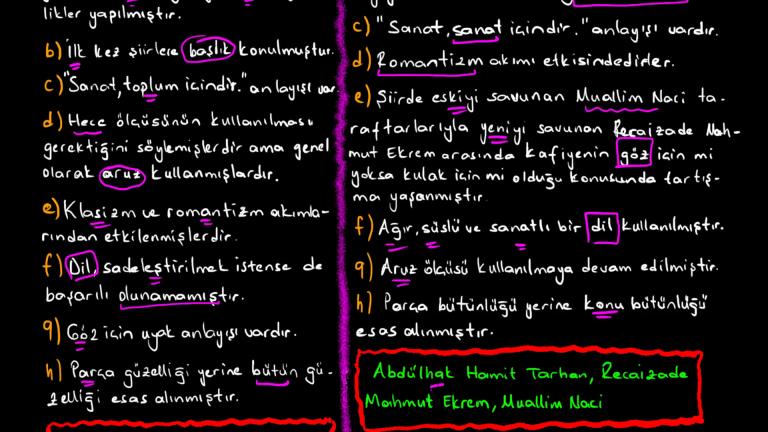 likler yapılmıştır.
b) İlk kez şiirlere başlık konulmuştur.
c) "Sanat, toplum içindir." anlayışı var.
d) Hece ölçüsünün kullanılması
gerektiğini söylemişlerdir ama genel
olarak aruz kullanmışlardır.
e) Klasizm ve romantizm akımla-
rından etkilenmişlerdir.
f) Dil, sadeleştirilmek istense de
başarılı olunamamıştır.
g) Göz için uyak anlayışı vardır.
h) Parça güzelliği yerine bütün gü-
zelliği esas alınmıştır.
c) "Sanat, sanat içindir." anlayışı vardır.
d) Romantizm akımı etkisindedirler.
e) Şiirde eskiyi savunan Muallim Naci ta-
raftarlarıyla yeniyi savunan Recaizade Mah-
mut Ekrem arasında kafiyenin göz için mi
yoksa kulak için mi olduğu konusunda tartış-
ma yaşanmıştır.
f) Ağır, süslü ve sanatlı bir dil kullanılmıştır.
g) Aruz ölçüsü kullanılmaya devam edilmiştir.
h) Parça bütünlüğü yerine konu bütünlüğü
esas alınmıştır.
Abdülhak Hamit Tarhan, Recaizade
Mahmut Ekrem, Muallim Naci